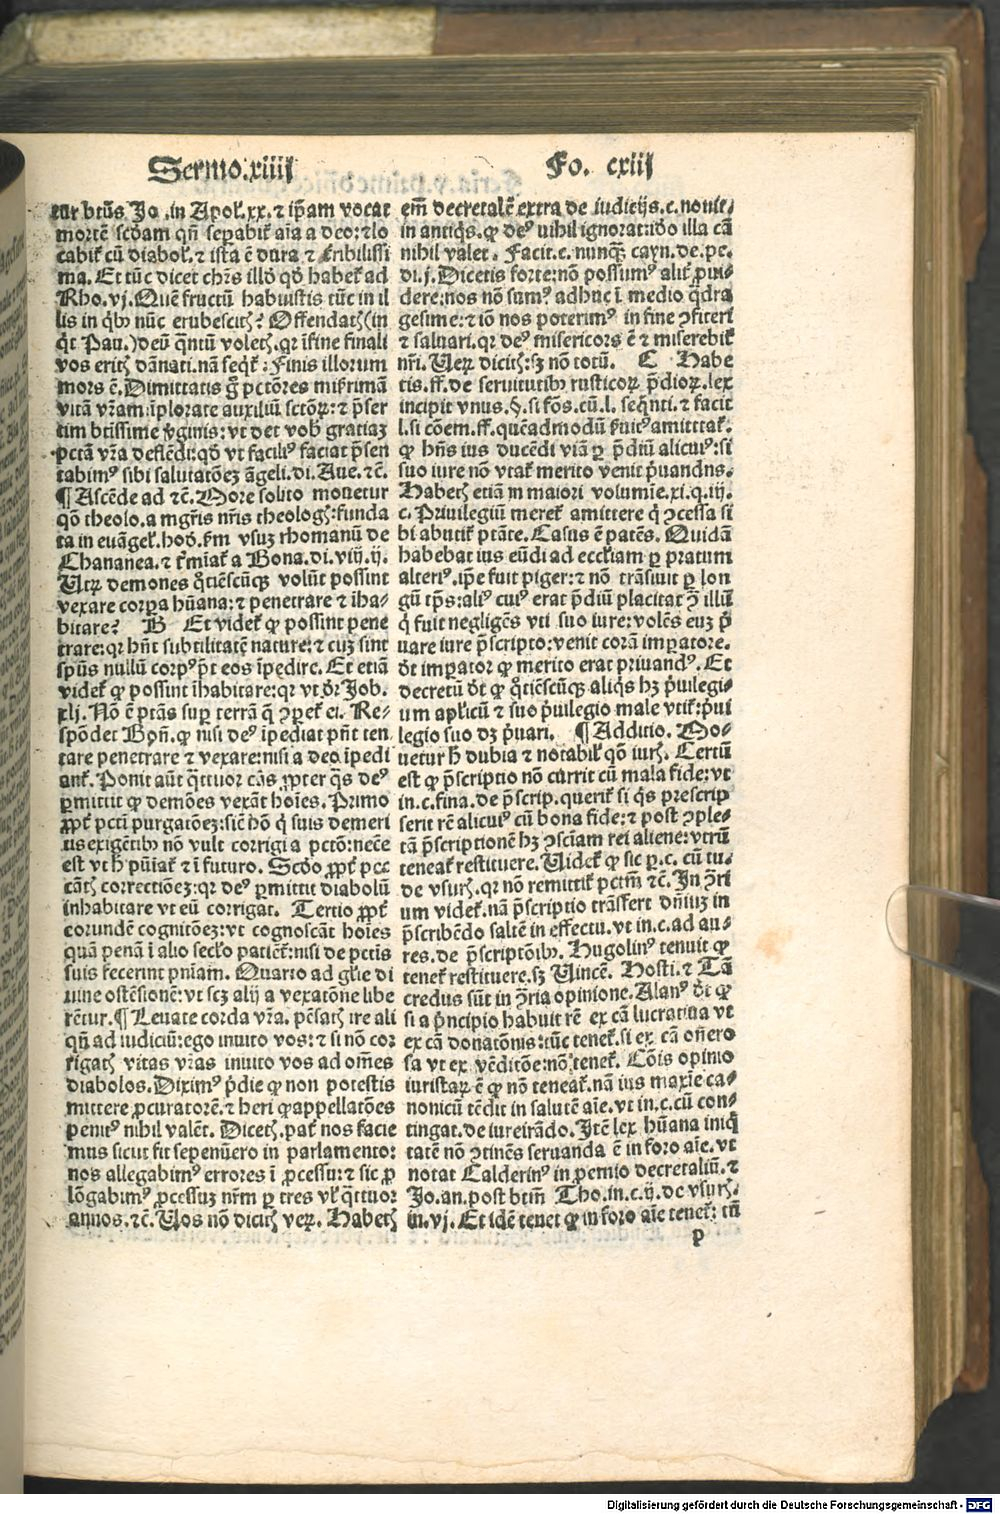 Sermo.xiiij
Fo. cxiij
tur btũs Jo .in Apoł.xx.⁊ ip̃am vocat
mortẽ scđam qñ sepabiť aĩa a deo:⁊ lo
cabiť cũ diaboł.⁊ ista ẽ dura ⁊
ma. Et tũc dicet chr̃s illđ qđ habeť ad
Rho.vj.Quẽ fructũ habuistis tũc in il
lis in qͥbꝰ nũc erubescitꝭ? Offendatꝭ (in
qͥt Pau.)deũ qͣntũ voletꝭ.qꝛ ĩfine finali
vos eritꝭ dãnati.nã seqͥť : Finis illorum
mors ẽ.Dimittatis g̊ pctõres miẜrimã
vitã vr̃am:ĩplorate auxiliũ sctõꝝ:⁊ p̃ser
tim btissime ꝟginis:vt det vob̾ gratiaꝫ
pctã vr̃a deflẽdi:qđ vt faciliꝰ faciat p̃sen
tabimꝰ sibi salutatõeꝫ ãgeli.di.Aue.⁊c̃.
¶ Ascẽde ad ⁊c̃. More solito mouetur
qõ theolo.a mgr̃is nr̃is theologꝭ:funda
ta in euãgeł.hođ.ẜm vsuꝫ rhomanũ de
Chananea.⁊ ťmĩať a Bona.di.viij.ij.
Utꝝ demones qͥtiẽscũqꝫ volũt possint
vexare corpa hũana:⁊ penetrare ⁊ ĩha-
bitare? B Et videť ꝙ possint pene
trare:qꝛ hñt subtilitatẽ nature:⁊ cuꝫ sint
spũs nullũ corpꝰ p̃t eos ĩpedire. Et etiã
videť ꝙ possint ĩhabitare:qꝛ vt đr Job.
xlj. Nõ ẽ ptãs suꝑ terrã q̃ ꝯpeť ei. Re-
spõdet Boñ.ꝙ nisi deꝰ ĩpediat pñt ten
tare penetrare ⁊ vexare:nisi a deo ĩpedi
anť.Ponit aũt qͣttuor cãs ꝓpter qͣs deꝰ
ꝑmittit ꝙ demões vexãt hoĩes.Primo
ꝓpť pctũ purgatõeꝫ:siẽ hõ qͥ suis demeri
tis exigẽtibꝰ nõ vult corrigi a pctõ:necẽ
est vt h̾ pũiať ⁊ ĩ futuro. Scđo ꝓpť pec
cãtꝭ correctiõeꝫ:qꝛ deꝰ ꝑmittit diabolũ
inhabitare vt eũ corrigat. Tertio ꝓpť
eorundẽ cognitõeꝫ:vt cognoscãt hoĩes
quã penã ĩ alio secło patiẽť:nisi de pctis
suis fecerint pñiam. Quarto ad głie di
uine ostẽsionẽ:vt scꝫ alij a vexatõne libe
rẽtur.¶ Leuate corda vr̃a. pẽsatꝭ ire ali
qñ ad iudiciũ:ego inuito vos:⁊ si nõ cor
rigatꝭ vitas vr̃as inuito vos ad om̃es
diabolos.Diximꝰ p̃die ꝙ non potestis
mittere ꝓcuratorẽ.⁊ heri ꝙ appellatões
penitꝰ nihil valẽt. Dicetꝭ.pať nos facie
mus sicut fit sepenũero in parlamento:
nos allegabimꝰ errores ĩ ꝓcessu:⁊ sic ꝓ
lõgabimꝰ ꝓcessuꝫ nr̃m ꝑ tres vł qͣttuor
annos.⁊c̃.Uos nõ dicitꝭ veꝝ. Habetꝭ
em̃ decretalẽ extra de iudicijs.c.nouit-
in antiqͥs.ꝙ deꝰ nihil ignorat:iđo illa cã
nihil valet. Facit.c.nunqͣꝫ cayn.de.pe.
di.j.Dicetis forte:nõ possumꝰ aliť ꝓui-
dere:nos nõ sumꝰ adhuc ĩ medio qͣdra
gesime:⁊ iõ nos poterimꝰ in fine ꝯfiteri
⁊ saluari.qꝛ deꝰ misericors ẽ ⁊ miserebiť
nr̃i. Ueꝝ dicitꝭ:sꝫ nõ totũ. C Habe
tis.ff.de seruitutibꝰ rusticoꝝ p̃dioꝝ.lex
incipit vnus.§.si fõs.cũ.l. seqͣnti.⁊ facit
l.si cõem.ff.quẽadmodũ ẜuitꝰ amittať.
ꝙ hñs ius ducẽdi viã ꝑ p̃diũ alicuiꝰ:si
suo iure nõ vtať merito venit p̃uandus.
Habetꝭ etiã in maiori volumĩe.xi.q.iij.
c. Priuilegiũ mereť amittere qͥ ꝯcessa si
bi abutiť ptãte. Casus ẽ patẽs. Quidã
habebat ius eũdi ad eccłiam ꝑ pratum
alteriꝰ.ip̃e fuit piger:⁊ nõ trãsiuit ꝑ lon
gũ tp̃s:aliꝰ cuiꝰ erat p̃diũ placitat ꝯ̃ illũ
qͥ fuit negligẽs vti suo iure:volẽs euꝫ p̃
uare iure p̃scripto:venit corã impatore.
đt impator ꝙ merito erat priuandꝰ. Et
decretũ đt ꝙ qͥtiẽscũqꝫ aliqͥs hꝫ p̃uilegi-
um aplicũ ⁊ suo p̃uilegio male vtiť:p̃ui
legio suo dꝫ p̃uari. ¶ Additio. Mo-
uetur h̾ dubia ⁊ notabił qõ iurꝭ. Certũ
est ꝙ p̃scriptio nõ currit cũ mala fide:vt
in.c.fina.de p̃scrip.queriť si qͥs prescrip
serit rẽ alicuiꝰ cũ bona fide:⁊ post ꝯple-
tã p̃scriptionẽ hꝫ ꝯsciam rei aliene:vtrũ
teneať restituere.Uideť ꝙ sic ꝑ.c. cũ tu.
de vsurꝭ.qꝛ nõ remittiť pctm̃ ⁊c̃. In ꝯ̃ri
um videť.nã p̃scriptio trãsfert dñiuꝫ in
p̃scribẽdo saltẽ in effectu.vt in.c.ad au-
res.de p̃scriptõibꝰ. Hugolinꝰ tenuit ꝙ
teneť restituere.sꝫ Uincẽ. Hosti.⁊ Tã
credus sũt in ꝯ̃ria opinione.Alanꝰ đt ꝙ
si a p̃ncipio habuit rẽ ex cã lucratiua vt
ex cã donatõnis:tũc teneť.si ex cã oñero
sa vt ex vẽditõe:nõ teneť. Cõis opinio
iuristaꝝ ẽ ꝙ nõ teneať.nã ius maxĩe ca-
nonicũ tẽdit in salutẽ aĩe.vt in.c.cũ con-
tingat.de iureirãdo.Itẽ lex hũana iniqͥ
tatẽ nõ ꝯtinẽs seruanda ẽ in foro aĩe.vt
notat Calderinꝰ in ꝓemio decretaliũ.⁊
Jo.an.post btm̃ Tho.in.c.ij.de vsurꝭ.
in.vj. Et idẽ tenet ꝙ in foro aĩe teneť: tñ
p
Digitalisierung gefördert durch die Deutsche Forschungsgemeinschaft - DFG